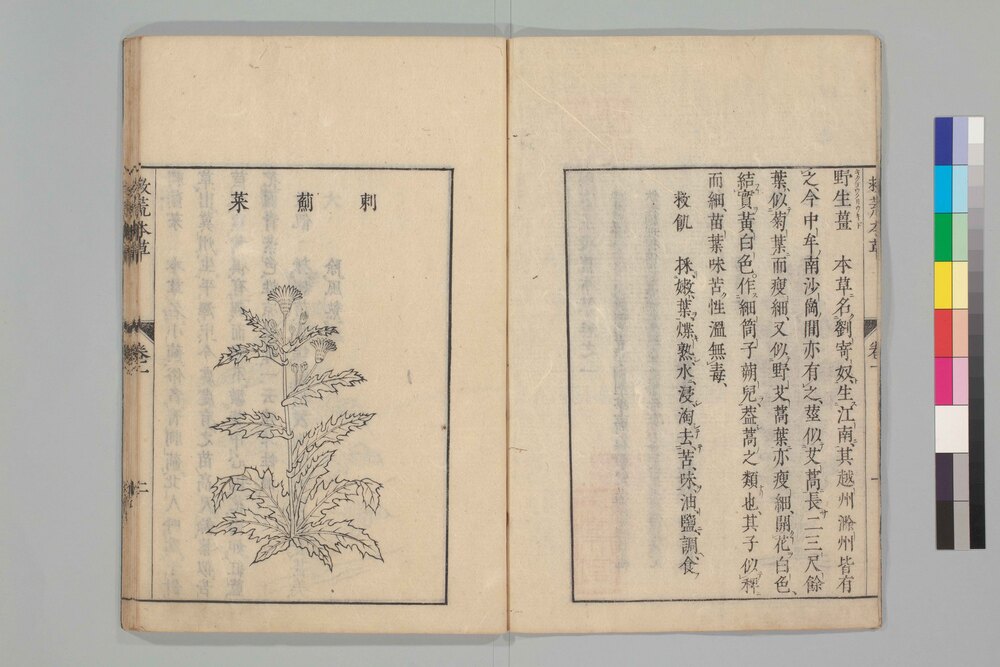 野生薑 本草名劉寄奴生江南其越州滁州皆有
之今中牟南沙崗間亦有之莖似艾蒿長二三尺餘
葉似菊葉而瘦細又似野艾蒿葉亦瘦細開花白色
結實黄白色作細筒子蒴兒葢蒿之類也其子似稗
而細苗葉味苦性溫無毒
救飢 採嫩葉煠熟水浸淘去苦味油鹽調食
刺薊菜
救荒本草 卷之一 二